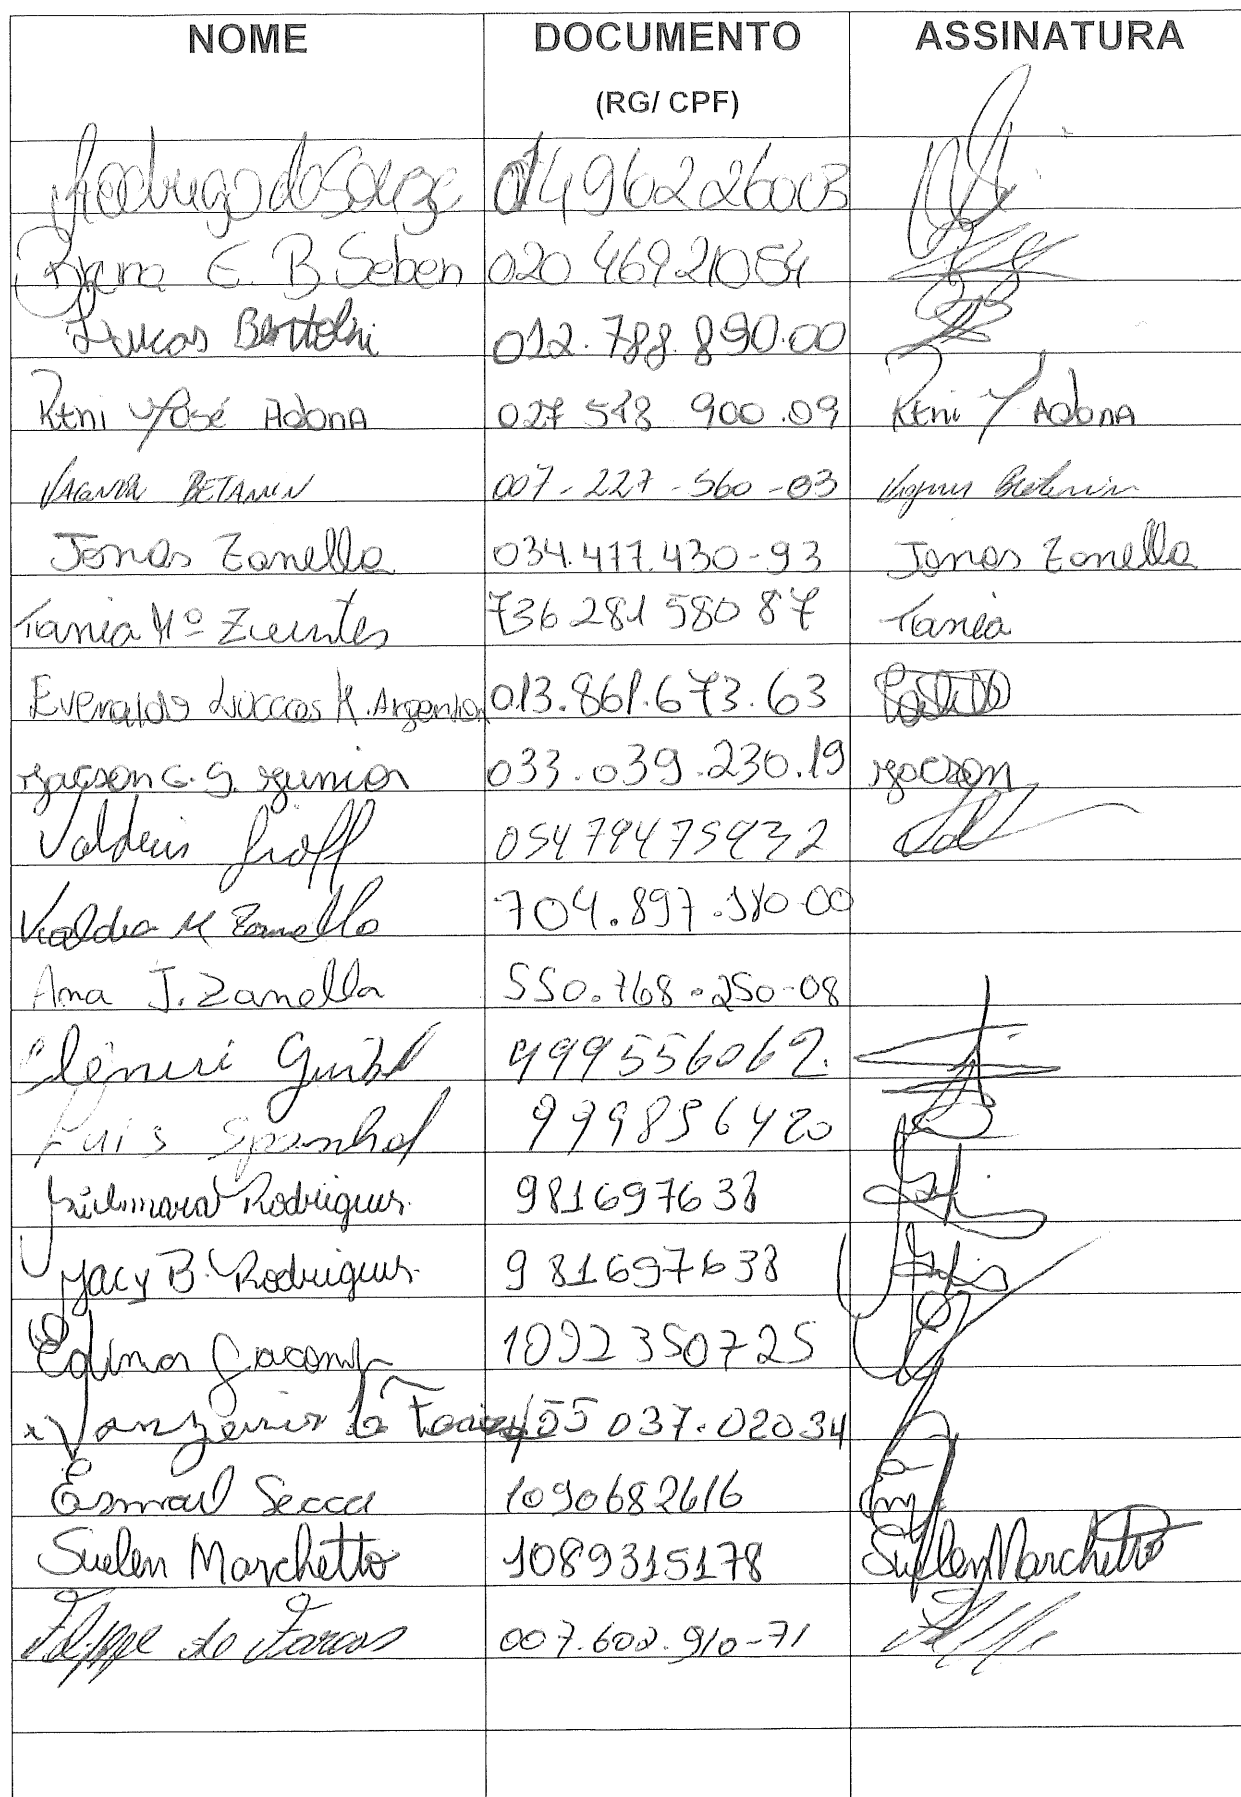 NOME DOCUMENTO ASSINATURA
(RG/ CPF)
Rodrigo de Souza 01496226003
E. B. Seben 020 46921054
Lucas Bertolni 012.788.890.00
Keni José Adona 027 548 900.09 Keni J Adona
VAGNER BETAMIN 007-227-560-03
Jonas Zanella 034.477.430-93 Jonas Zanella
Tania Mª 736 281 580 87 Tania
Everaldo Luccas K. 013.861.673.63
Jacson G. G. Junior 033.039.230.19 Jacson
05479475932
M Zanella 704.897.380-00
Ana J. Zanella 550.768.250-08
999556062
Luis Spanhol 999856420
Rodrigues. 981697638
Jacy B. Rodrigues. 981697638
Edimar 1092350725
55 037.02034
Esmael Secca 1090682616
Suelen Marchetto 1089315178 Suelen Marchetto
Felippe de 007.602.910-71